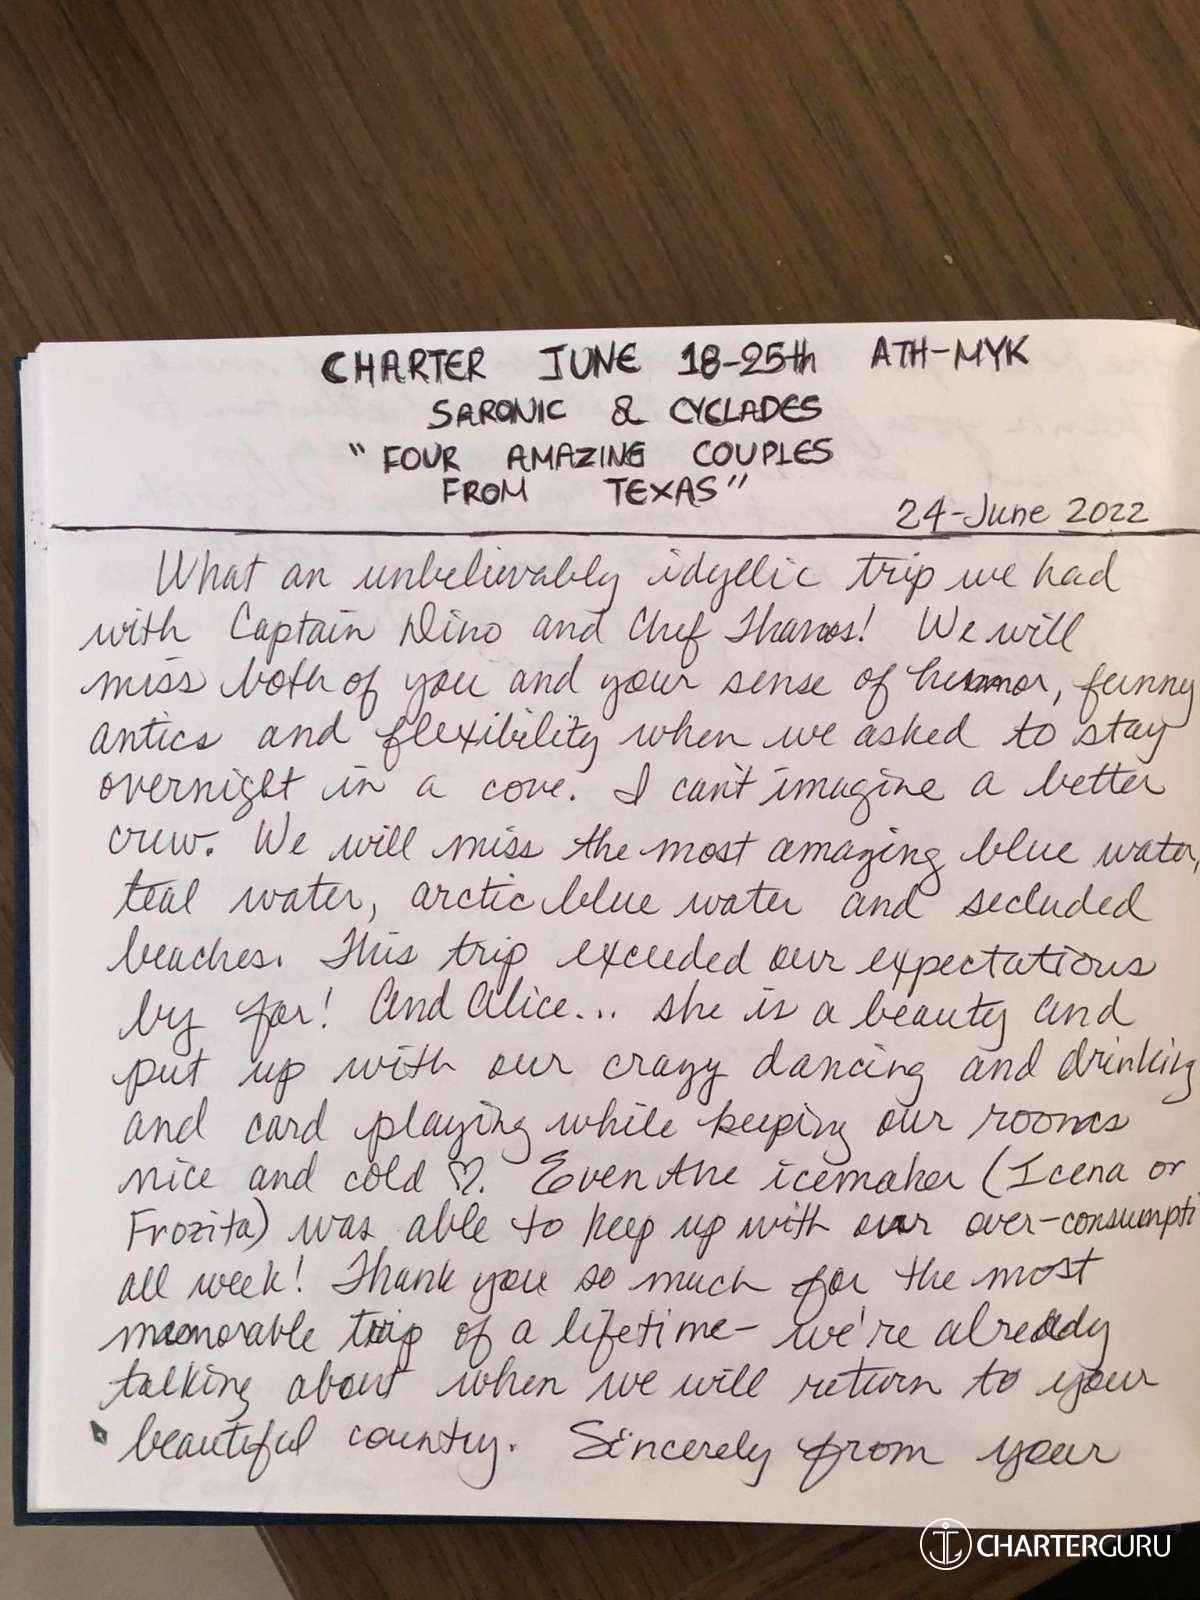 CHARTER JUNE 18-25th ATH-MYK
SARONIC & CYCLADES
"FOUR AMAZING COUPLES
FROM TEXAS"
24-June 2022
What an unbelievably idyllic trip we had
with Captain Dino and Chef Thanos! We will
miss both of you and your sense of humor, funny
antics and flexibility when we asked to stay
overnight in a cove. I can't imagine a better
crew. We will miss the most amazing blue water,
teal water, arctic blue water and secluded
beaches. This trip exceeded our expectations
by far! And Alice... she is a beauty and
put up with our crazy dancing and drinking
and card playing while keeping our rooms
nice and cold ♡. Even the icemaker (Icena or
Frozita) was able to keep up with our over-consumpti
all week! Thank you so much for the most
memorable trip of a lifetime- we're already
talking about when we will return to your
beautiful country. Sincerely from your
CHARTERGURU